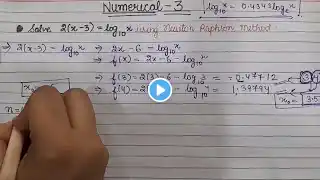 Numerical-3
log₁₀x = 0.4343 logₑx
• Solve 2(x-3) = log₁₀x using Newton Raphson Method.
⇒ 2(x-3) = log₁₀x ⇒ 2x - 6 = log₁₀x
⇒ f(x) = 2x - 6 - log₁₀x
⇒ f(3) = 2(3) - 6 - log₁₀3 = -0.47712
⇒ f(4) = 2 - log₁₀4 = 1.39794
x₀ = 3.5
n=